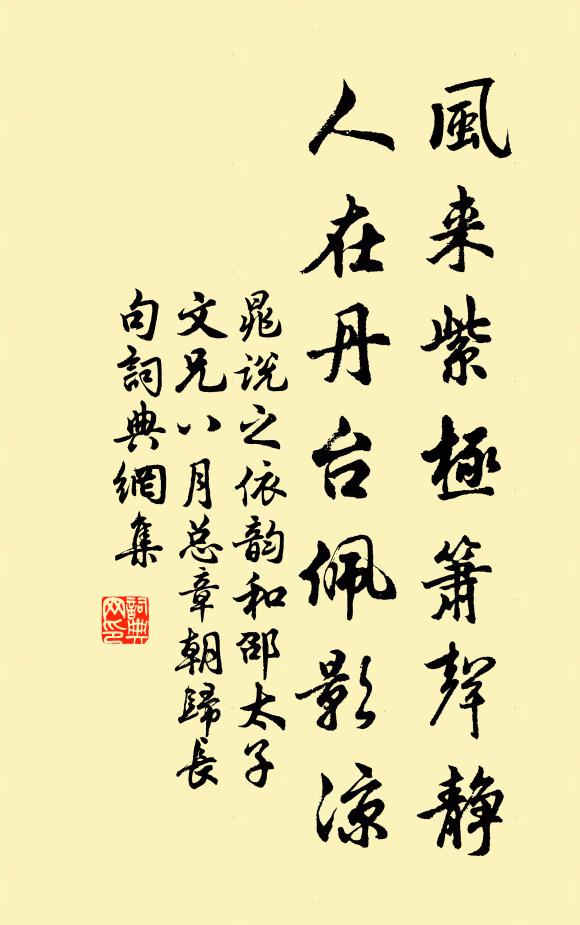 風来紫極簫聲静
人在丹台佩影凉
晁説之依韵和邵太子
文兄八月总章朝歸長
句詞典網集
詞典
网印